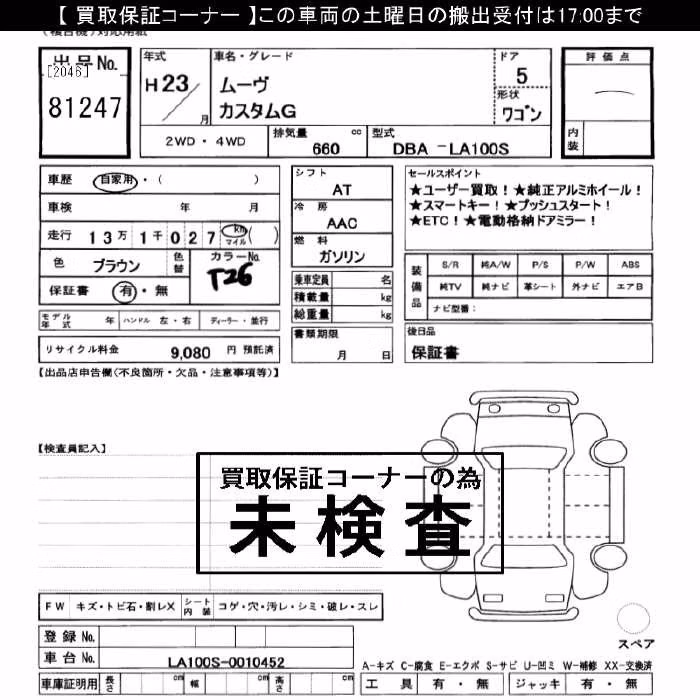 【 買取保証コーナー 】この車両の土曜日の搬出受付は17:00まで
出品No.
[2046]
81247
年式
H23/
月
車名・グレード
ムーヴ
カスタムG
ドア
5
形状
ワゴン
評価点
内装
2WD・4WD
排気量 cc
660
型式
DBA -LA100S
車歴 自家用・( )
車検 年 月
走行 13万1千027 km マイル ( )
色 ブラウン 色替
カラーNo.
T26
保証書 有・無
シフト
AT
冷房
AAC
燃料
ガソリン
乗車定員 名
積載量 kg
総重量 kg
セールスポイント
★ユーザー買取!★純正アルミホイール!
★スマートキー!★プッシュスタート!
★ETC!★電動格納ドアミラー!
装備品
S/R 純A/W P/S P/W ABS
純TV 純ナビ 革シート 外ナビ エアB
ナビ型番:
モデル年式 年 ハンドル 左・右 ディーラー・並行
リサイクル料金 9,080 円 預託済
書類期限
月 日
後日品
保証書
【出品店申告欄(不良箇所・欠品・注意事項等)】
【検査員記入】
買取保証コーナーの為
未検査
FW キズ・トビ石・割レX シート内装 コゲ・穴・汚レ・シミ・破レ・スレ
登録No.
車台No. LA100S-0010452
車庫証明用 長さ cm 幅 cm 高さ cm
スペア
A-キズ C-腐食 E-エクボ S-サビ U-凹ミ W-補修 XX-交換済
工具 有・無 ジャッキ 有・無